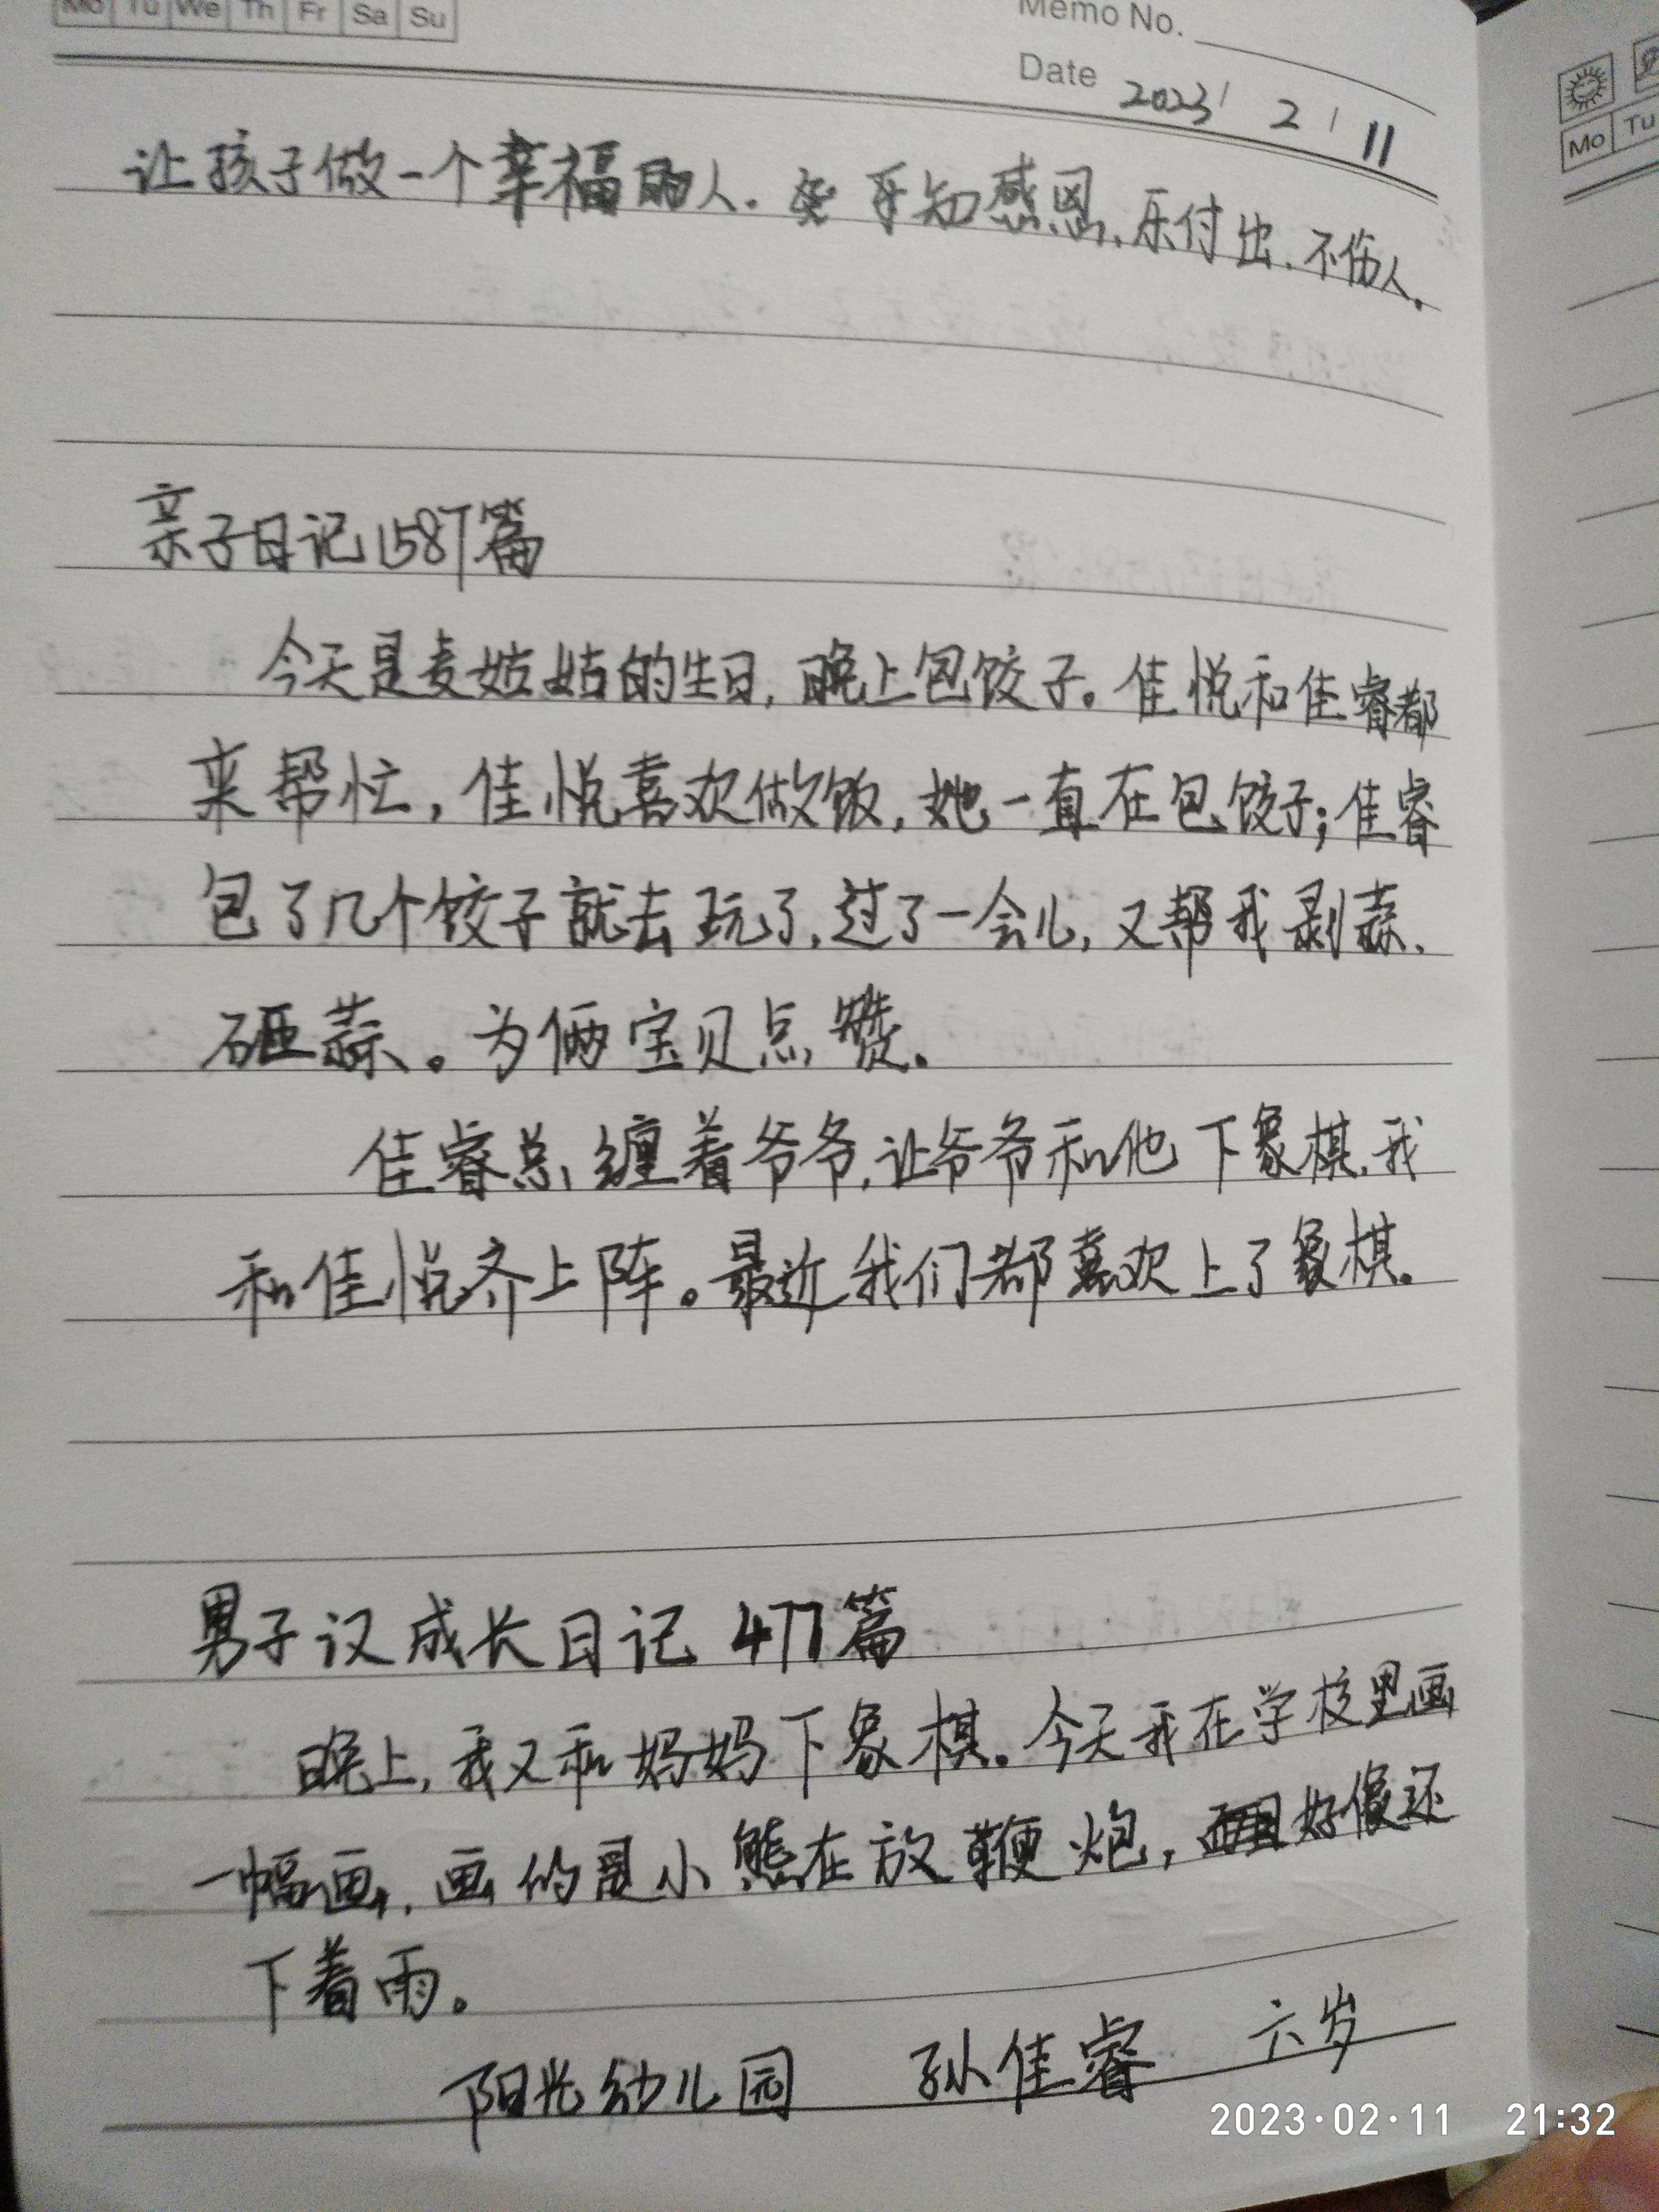 Mo Tu We Th Fr Sa Su
Memo No.
Date 2023/ 2 / 11
让孩子做一个幸福的人. 孝知感恩、乐付出、不伤人.
亲子日记1587篇
今天是麦姑姑的生日, 晚上包饺子。佳悦和佳睿都
来帮忙, 佳悦喜欢做饭, 她一直在包饺子; 佳睿
包了几个饺子就去玩了, 过了一会儿, 又帮我剥蒜、
砸蒜。为俩宝贝点赞。
佳睿总缠着爷爷, 让爷爷和他下象棋, 我
和佳悦齐上阵。最近我们都喜欢上了象棋。
男子汉成长日记 477篇
晚上, 我又和妈妈下象棋。今天我在学校里画
一幅画, 画的是小熊在放鞭炮, 好像还
下着雨。
阳光幼儿园 孙佳睿 六岁
Mo Tu
2023·02·11 21:32